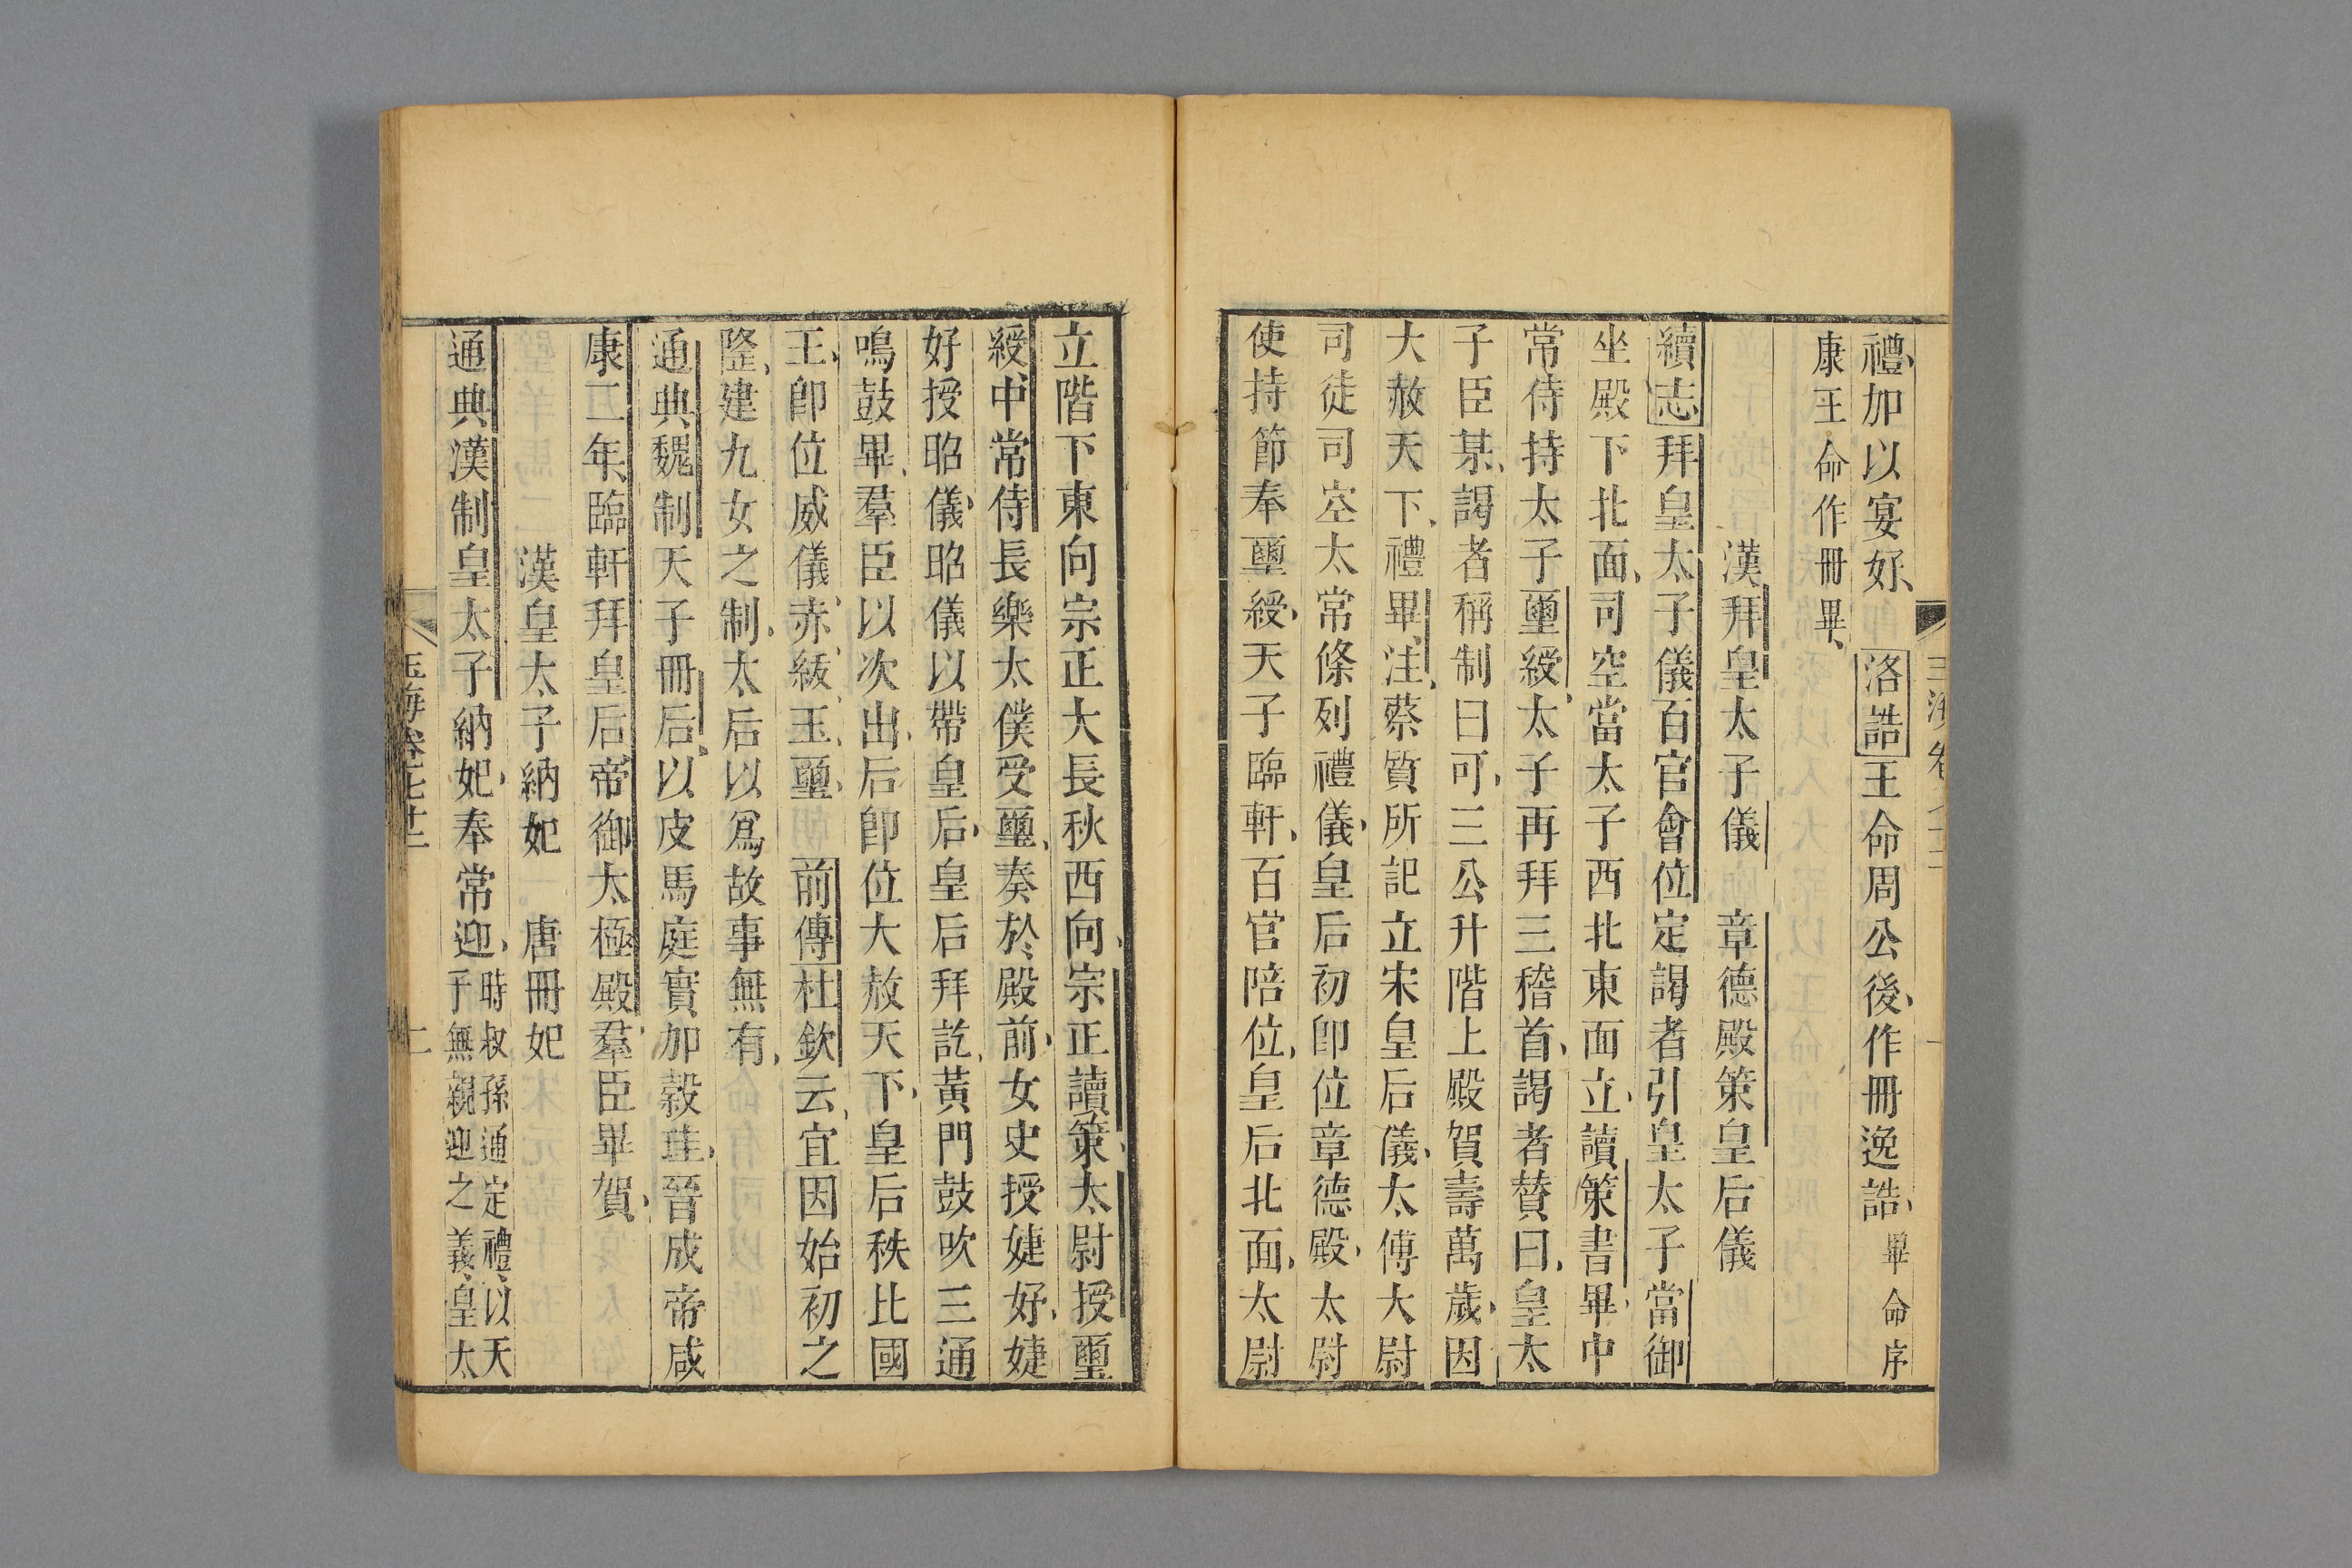 禮加以宴好洛誥王命周公後作冊逸誥畢命序
康王命作冊畢
漢拜皇太子儀　章德殿策皇后儀
續志拜皇太子儀百官會位定謁者引皇太子當御
坐殿下北面司空當太子西北東面立讀策書畢中
常侍持太子璽綬太子再拜三稽首謁者贊曰皇太
子臣某謁者稱制曰可三公升階上殿賀壽萬歲因
大赦天下禮畢注蔡質所記立宋皇后儀太傅大尉
司徒司空太常條列禮儀皇后初卽位章德殿太尉
使持節奉璽綬天子臨軒百官陪位皇后北面太尉
立階下東向宗正大長秋西向宗正讀策太尉授璽
綬中常侍長樂太僕受璽奏於殿前女史授婕妤婕
妤授昭儀昭儀以帶皇后皇后拜訖黃門鼓吹三通
鳴鼓畢羣臣以次出后卽位大赦天下皇后秩比國
王卽位威儀赤紱玉璽前傳杜欽云宜因始初之
隆建九女之制太后以爲故事無有
通典魏制天子冊后以皮馬庭實加穀珪晉成帝咸
康二年臨軒拜皇后帝御太極殿羣臣畢賀
漢皇太子納妃　唐冊妃
通典漢制皇太子納妃奉常迎時叔孫通定禮以天
子無親迎之義皇太
玉海卷七十二